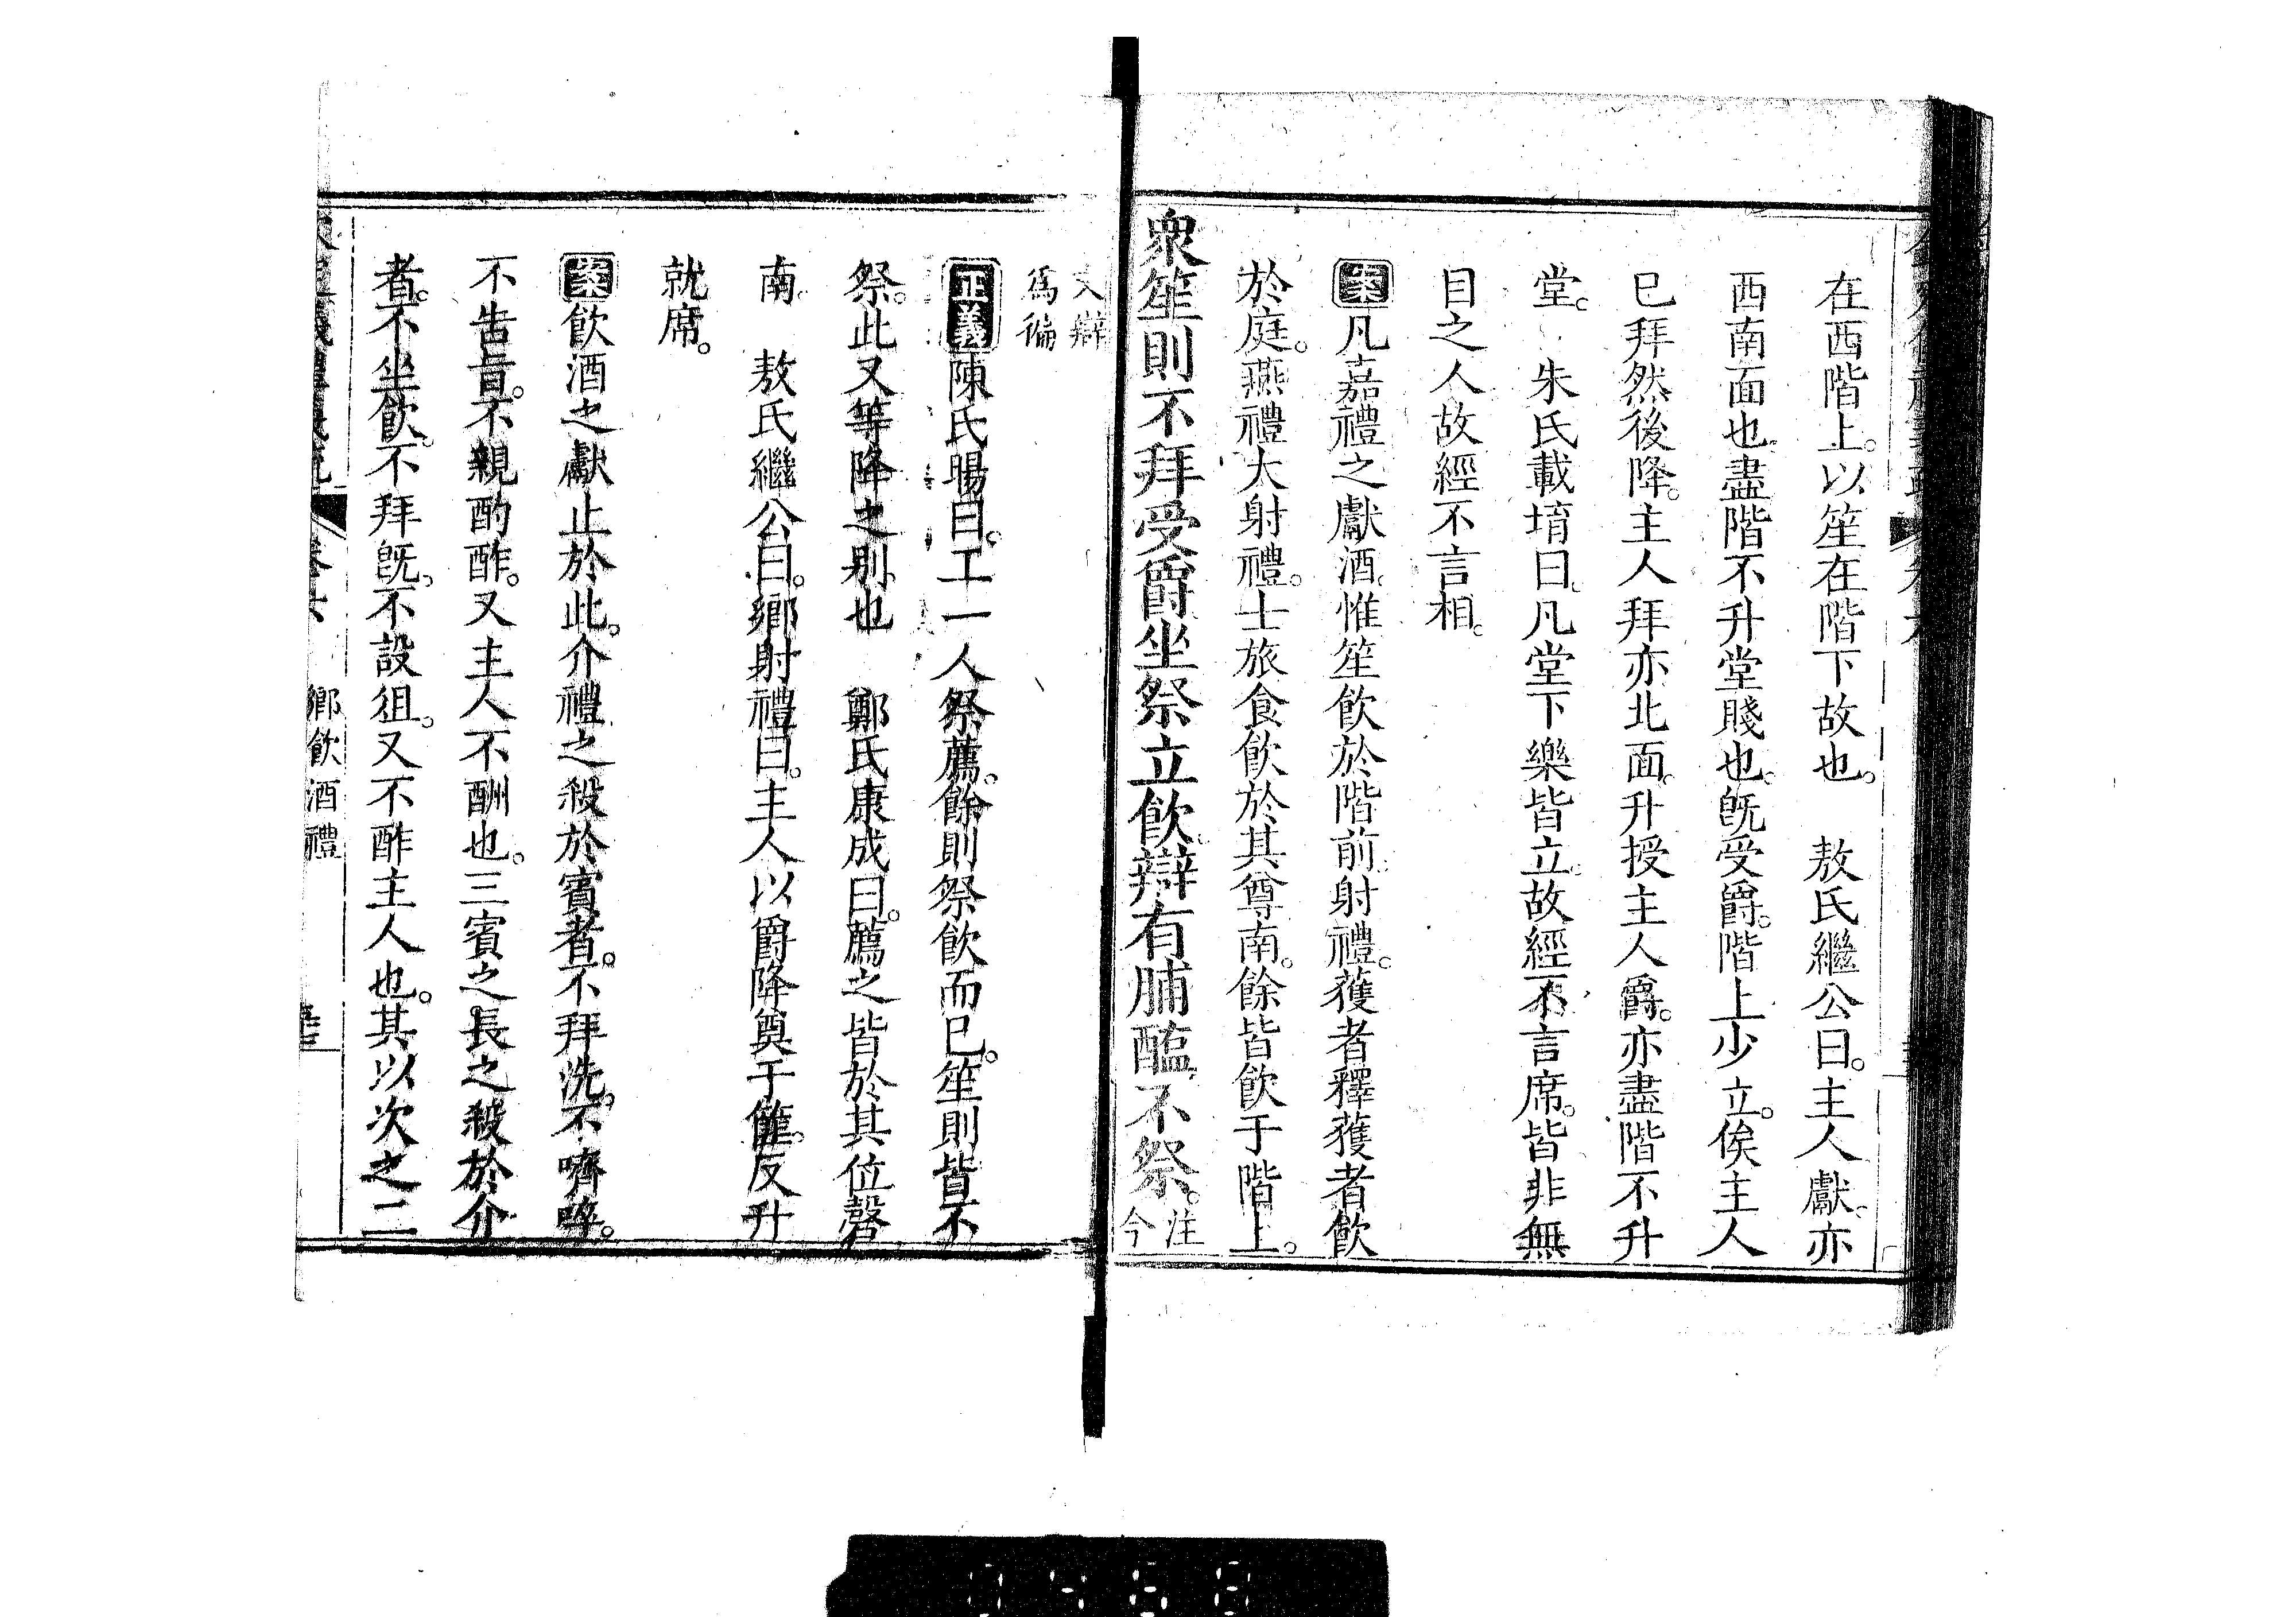 在西階上。以笙在階下故也。　敖氏繼公曰。主人獻。亦
西南面也。盡階不升堂賤也。旣受爵。階上少立。俟主人
已拜然後降。主人拜亦北面。升授主人爵。亦盡階不升
堂。　朱氏載堉曰。凡堂下樂皆立。故經不言席。皆非無
目之人故經不言相。
案凡嘉禮之獻酒。惟笙飮於階前。射禮。獲者釋獲者飮
於庭。燕禮大射禮。士旅食飮於其尊南。餘皆飮于階上。
衆笙則不拜受爵坐祭立飮。辯有脯醢不祭。注今
文辯
爲徧
正義陳氏暘曰。工一人祭薦。餘則祭飮而已。笙則皆不
祭。此又等降之別也　鄭氏康成曰。薦之皆於其位磬
南。　敖氏繼公曰。鄉射禮曰。主人以爵降奠于篚。反升
就席。
案飮酒之獻止於此。介禮之殺於賓者。不拜洗。不嚌啐。
不告旨。不親酌酢。又主人不酬也。三賓之長之殺於介
者。不坐飮。不拜旣。不設俎。又不酢主人也。其以次之二
鄉飮酒禮